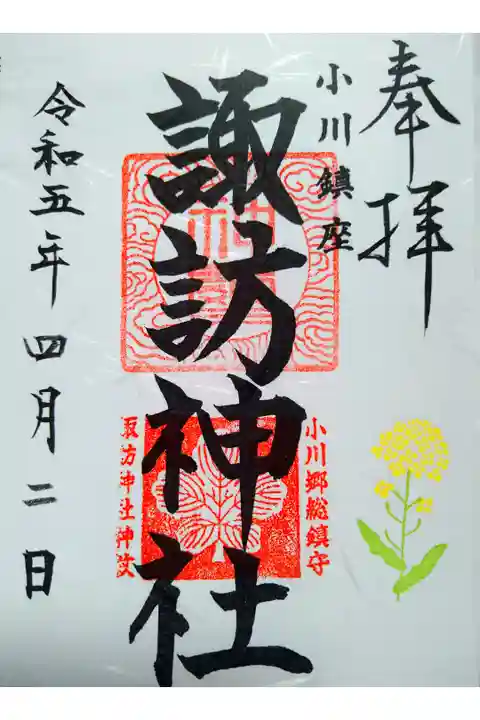 奉拝
小川鎮座
諏訪神社
小川郷総鎮守
諏訪神社神紋
令和五年四月二日